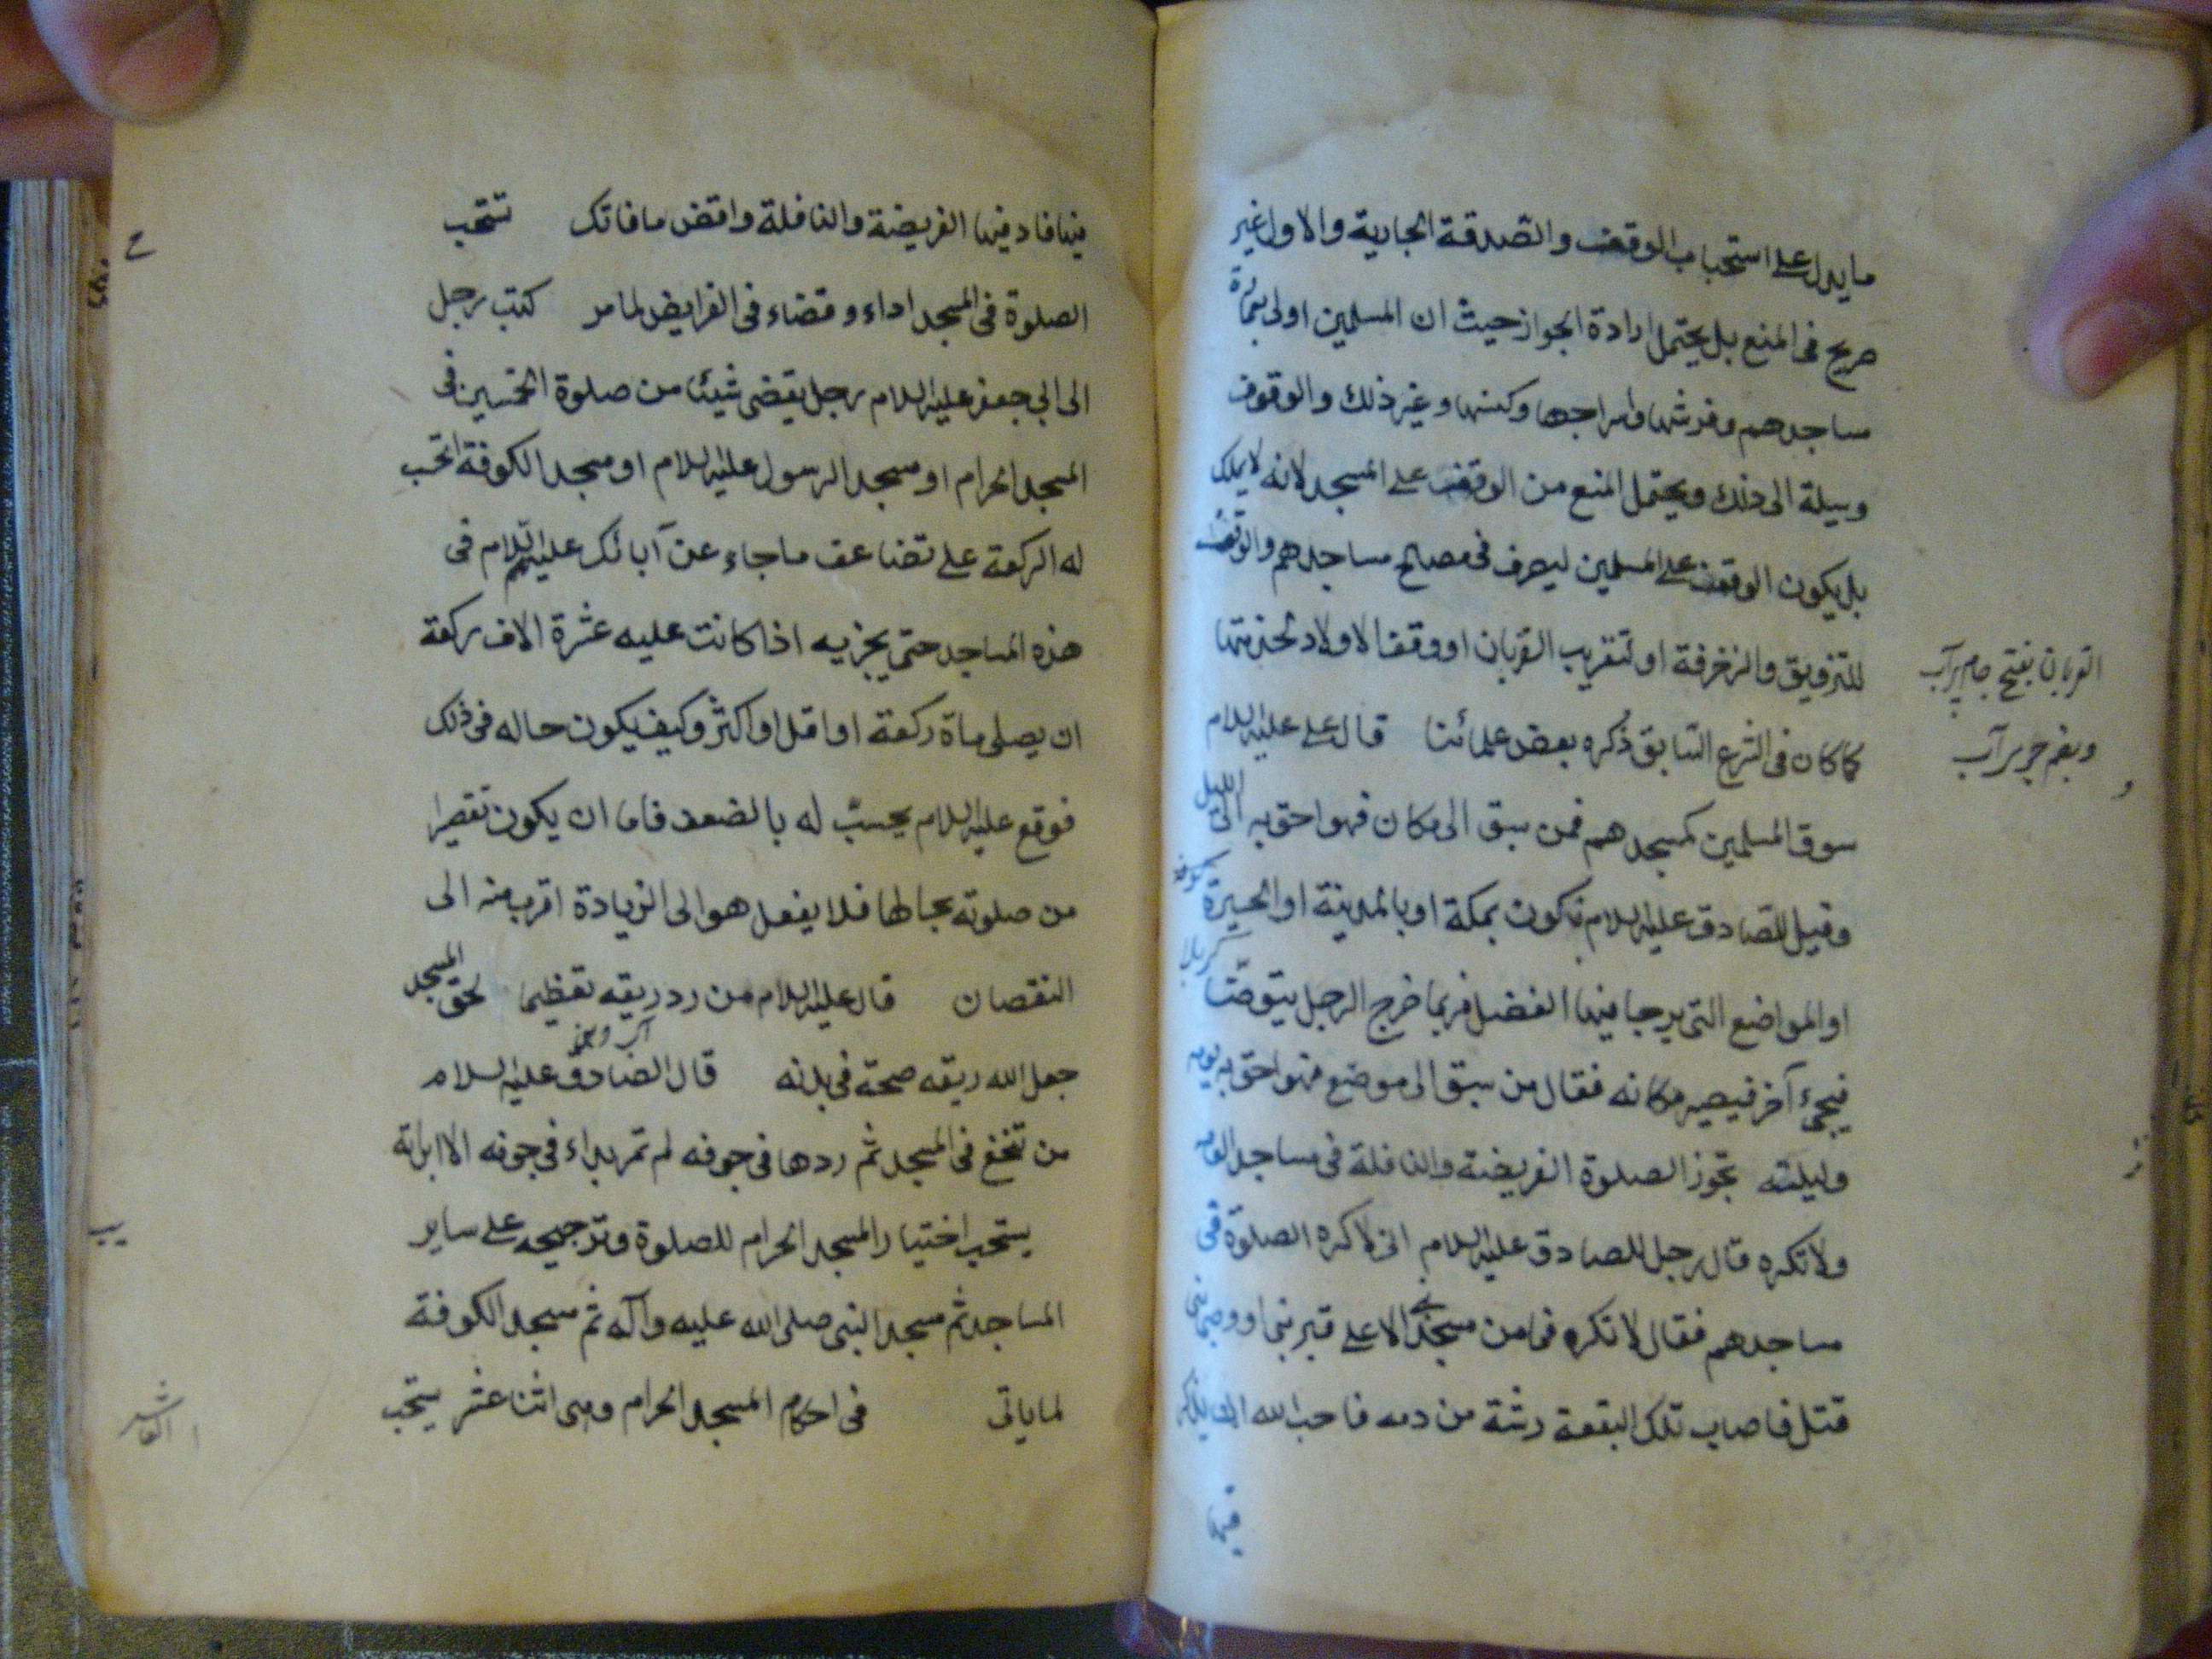 ما يدل على استحباب الوقف والصدقة الجارية والاول غير
صريح فى المنع بل يحتمل ارادة الجواز حيث ان المسلمين اولى بعمارة
مساجدهم وفرشها واسراجها وكنسها وغير ذلك والوقوف
وسيلة الى ذلك ويحتمل المنع من الوقف على المسجد لانه لا يملك
بل يكون الوقف على المسلمين ليصرف فى مصالح مساجدهم والوقف
للتزويق والزخرفة او لتقريب القربان او وقف الاولاد لخدمتها
كما كان فى الشرع السابق ذكره بعض علمائنا قال على عليه السلام
سوق المسلمين كمسجدهم فمن سبق الى مكان فهو احق به الى الليل
وقيل للصادق عليه السلام نكون بمكة او بالمدينة او الحيرة
او المواضع التى يرجا فيها الفضل فربما خرج الرجل يتوضأ
فيجىء آخر فيصير مكانه فقال من سبق الى موضع فهو احق به يومه
وليلته تجوز الصلوة الفريضة والنافلة فى مساجد العامه
ولا تكره قال رجل للصادق عليه السلام انى لاكره الصلوة فى
مساجدهم فقال لا تكره فما من مسجد بنى الا على قبر نبى او وصى نبى
قتل فاصاب تلك البقعة رشة من دمه فاحب الله ان يذكر
فيها
القربان بفتح
وبضم
كوفه
كربلا
فيها فاد فيها الفريضة والنافلة واقض ما فاتك تستحب
الصلوة فى المسجد اداء وقضاء فى الفرايض لما مر كتب رجل
الى ابى جعفر عليه السلام رجل يقضى شيئا من صلوة الخمسين فى
المسجد الحرام او مسجد الرسول عليه السلام او مسجد الكوفة اتحسب
له الركعة على تضاعف ما جاء عن آبائك عليهم السلام فى
هذه المساجد حتى يجزيه اذا كانت عليه عشرة الاف ركعة
ان يصلى ماة ركعة او اقل او اكثر وكيف يكون حاله فى ذلك
فوقع عليه السلام يحسب له بالضعف فاما ان يكون تقصيرا
من صلوته بحالها فلا يفعل هو الى الزيادة اقرب منه الى
النقصان قال عليه السلام من رد ريقه تعظيما لحق المسجد
جعل الله ريقه صحة فى بدنه قال الصادق عليه السلام
من تنخع فى المسجد ثم ردها فى جوفه لم تمر بداء فى جوفه الا ابراته
يستحب اختيار المسجد الحرام للصلوة وترجيحه على ساير
المساجد ثم مسجد النبى صلى الله عليه وآله ثم مسجد الكوفة
لما ياتى فى احكام المسجد الحرام وهى اثنا عشر يستحب
ح
يب
العاشر